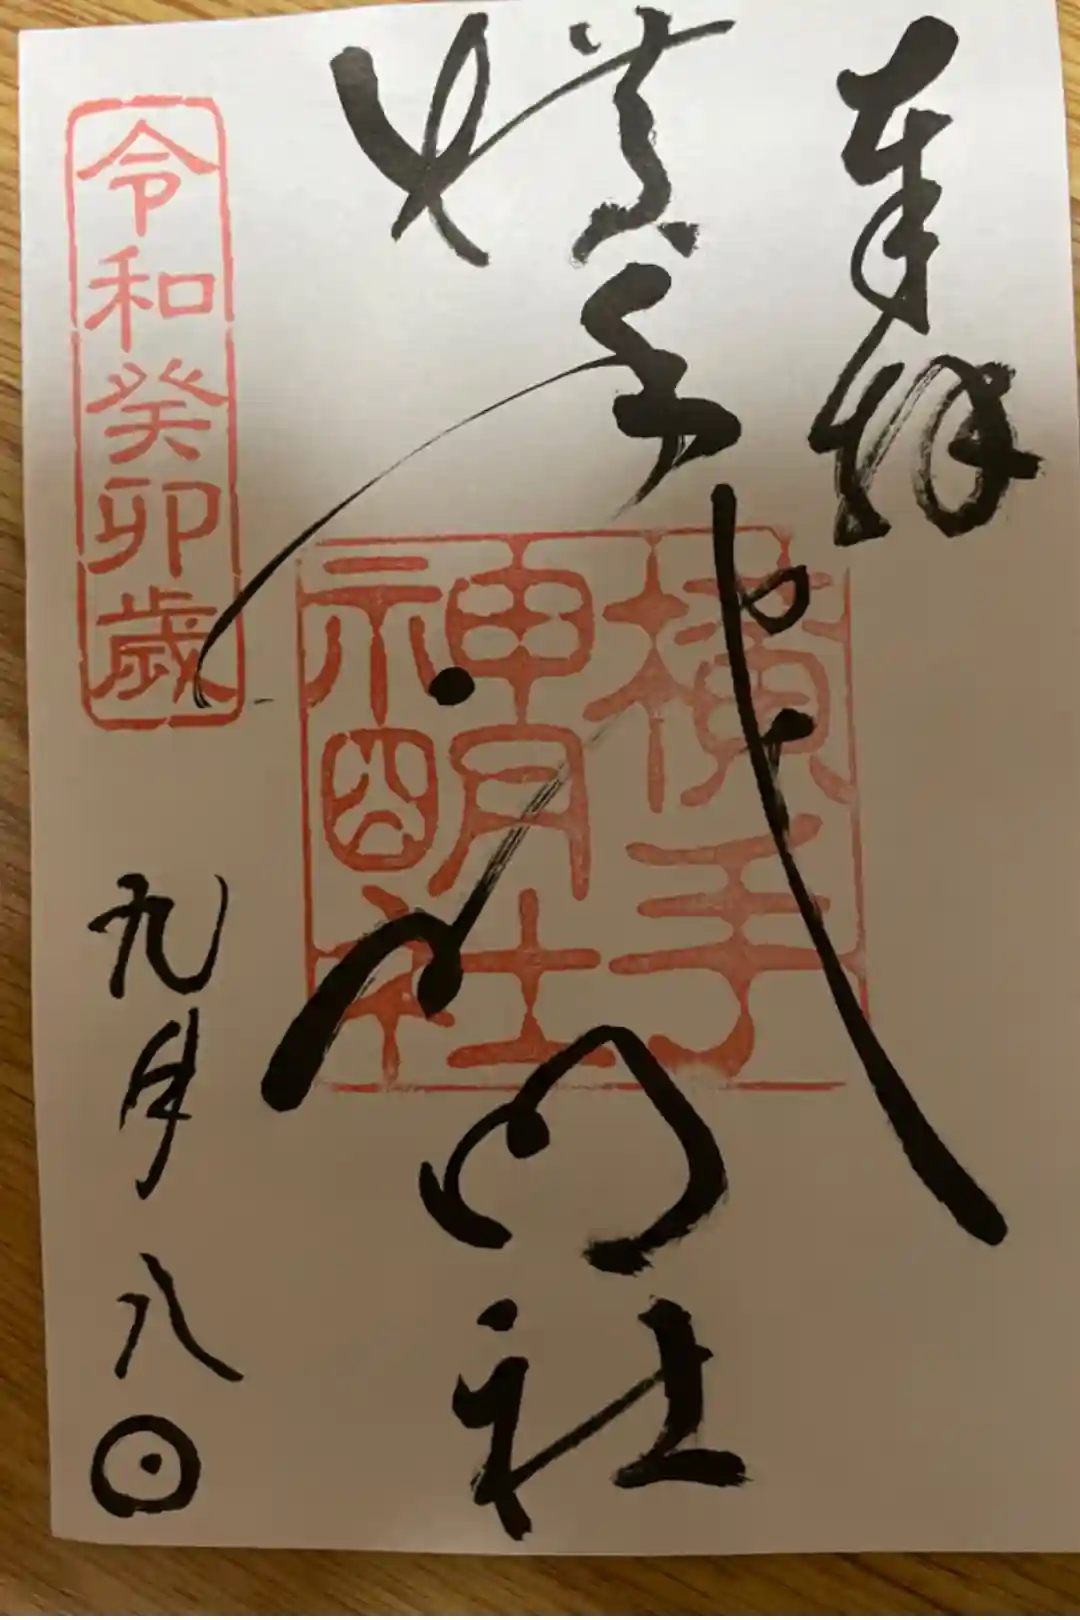 奉拝
横手
神明社
横手
神明社
令和癸卯歳
九月八日